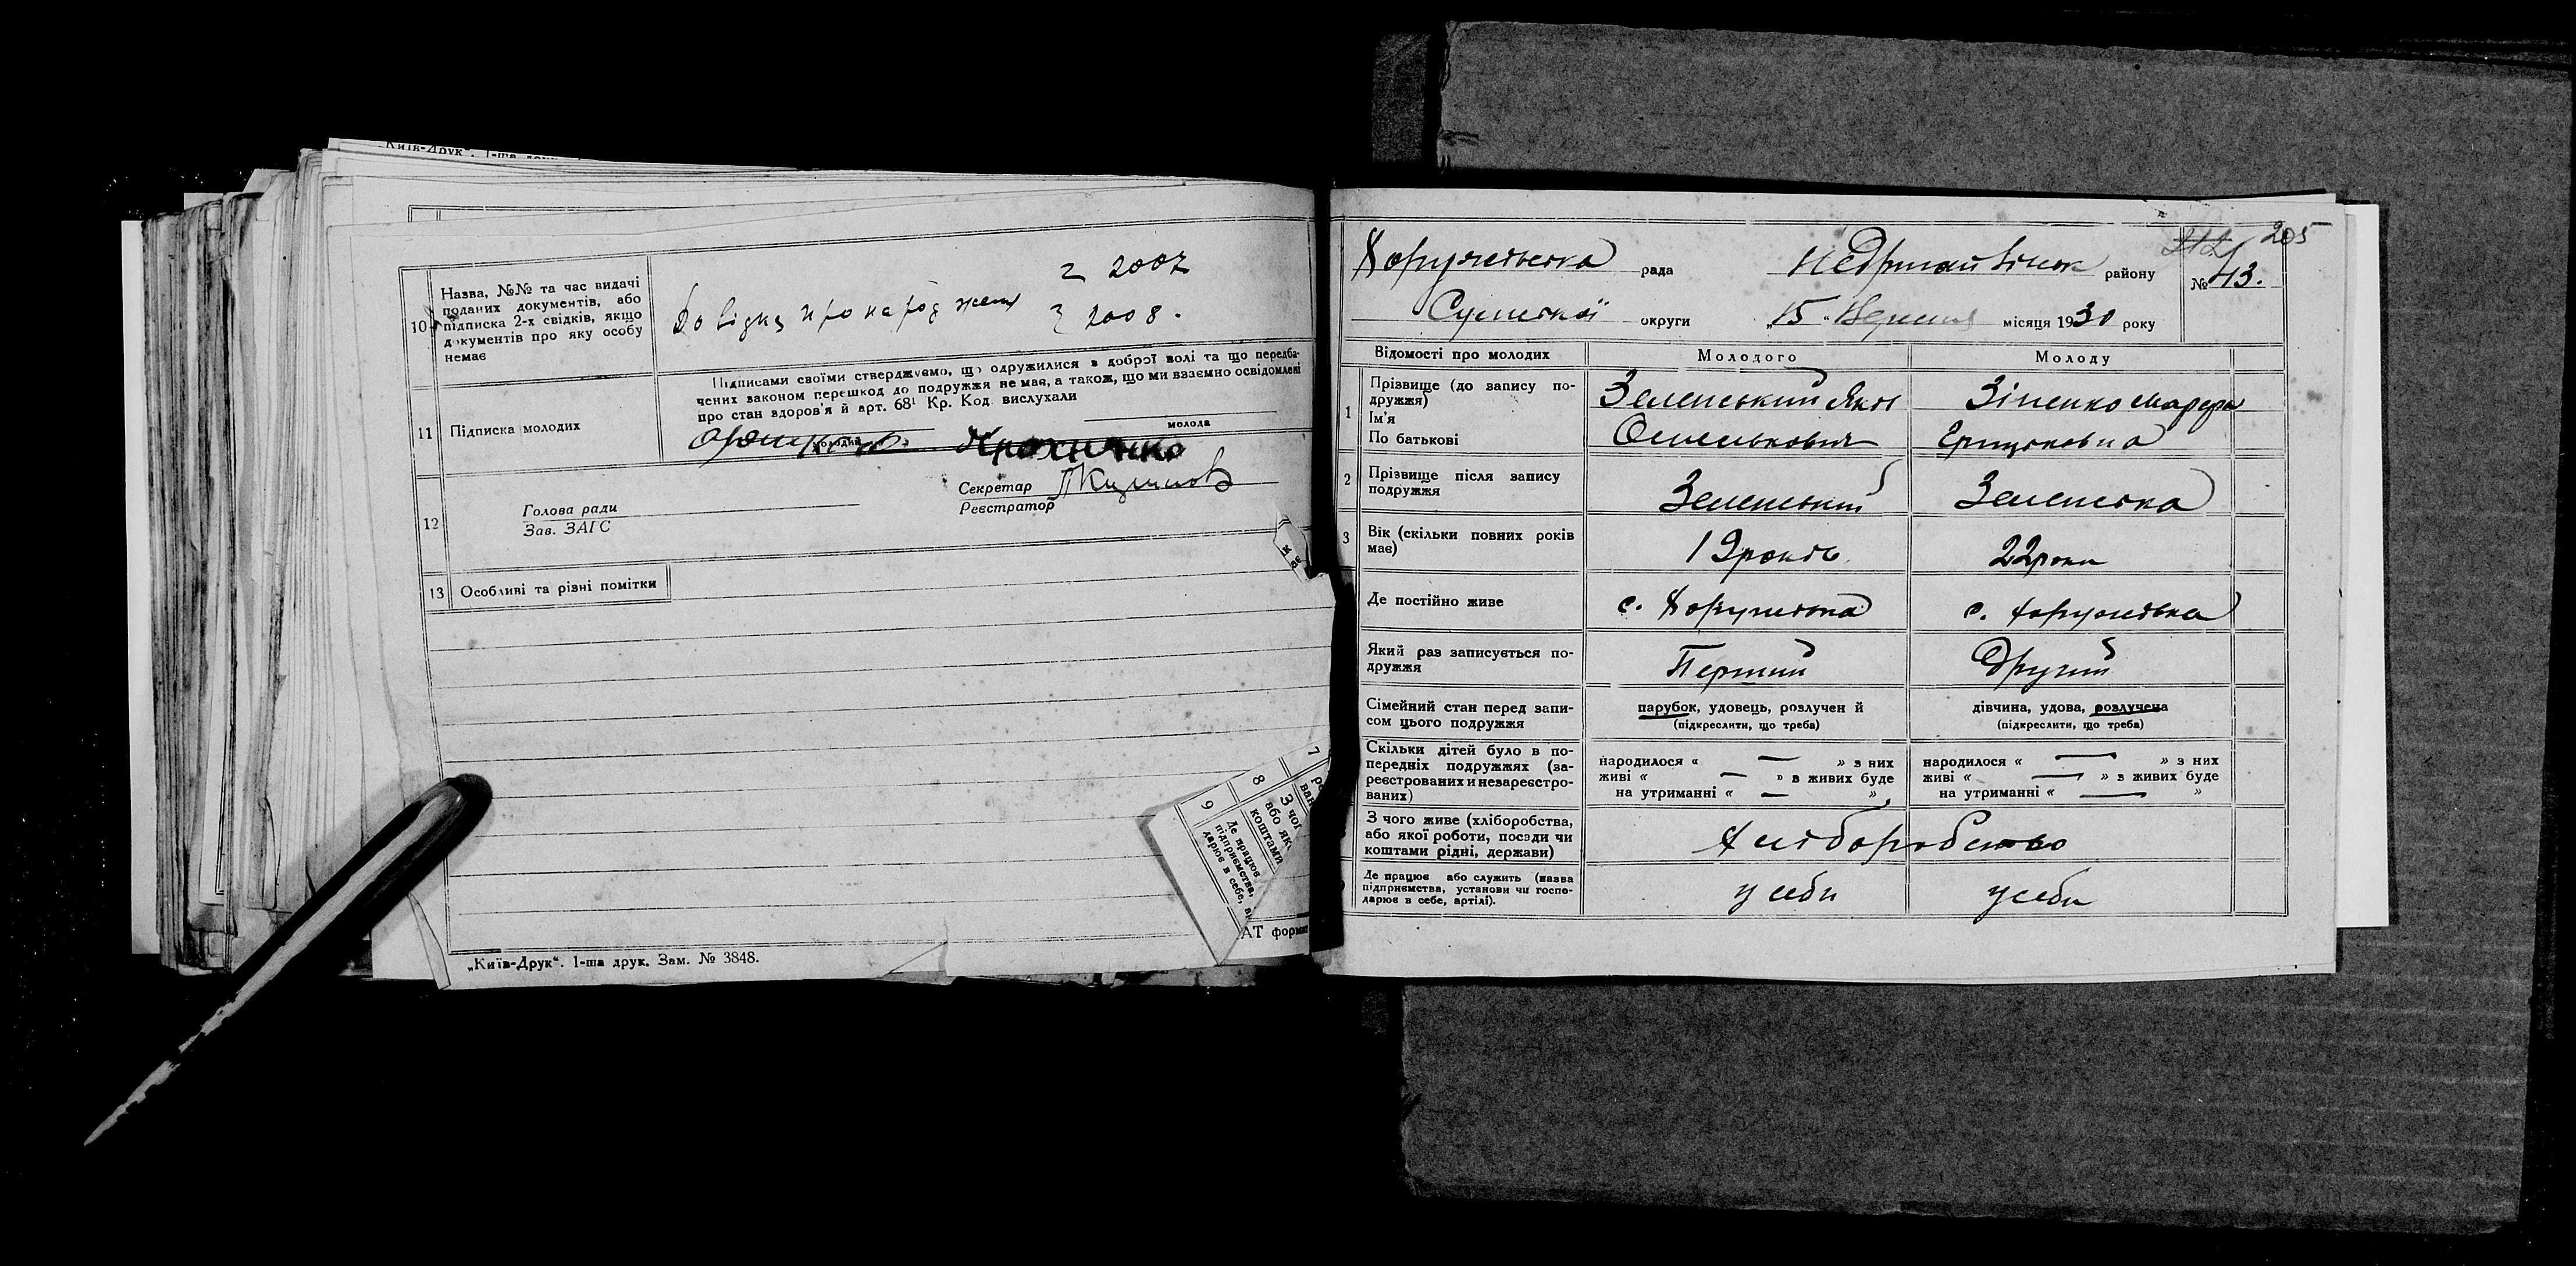 „Київ-Друк“. 1-ша друк.
10 Назва, №№ та час видачі
поданих документів, або
підписка 2-х свідків, якщо
документів про яку особу
немає
Довідка про народження
2007
2008.
11 Підписка молодих
Підписами своїми стверджуємо, що одружилися з доброї волі та що передба-
чених законом перешкод до подружжя немає, а також, що ми взаємно освідомлені
про стан здоров'я й арт. 68¹ Кр. Код. вислухали
молодий
молода
12 Голова ради
Зав. ЗАГС
Секретар
Реєстратор
13 Особливі та різні помітки
7
8 З чої
або як
коштами
9 Де працює
підприємства,
дарює в себе,
АТ форм
„Київ-Друк“. 1-ша друк. Зам. № 3848.
205
Хоружівська рада району № 43.
Сумської округи „15“ Вересня місяця 1930 року
Відомості про молодих Молодого Молоду
1 Прізвище (до запису по-
дружжя)
Ім'я
По батькові
Зеленський Яків
Омелькович
Зіненко Марфа
Грицьковна
2 Прізвище після запису
подружжя
Зеленський Зеленська
3 Вік (скільки повних років
має)
19 років 22 роки
Де постійно живе с. Хоружівка с. Хоружівка
Який раз записується по-
дружжя
Перший Другий
Сімейний стан перед запи-
сом цього подружжя
парубок, удовець, розлучен й
(підкреслити, що треба)
дівчина, удова, розлучена
(підкреслити, що треба)
Скільки дітей було в по-
передніх подружжях (за-
реєстрованих и незареєстро-
ваних)
народилося « — » з них
живі « — » з живих буде
на утриманні « — »
народилося « — » з них
живі « — » з живих буде
на утриманні « — »
З чого живе (хліборобства,
або якої роботи, посади чи
коштами рідні, держави)
Хліборобство
Де працює або служить (назва
підприємства, установи чи госпо-
дарює в себе, артілі).
у себи у себи